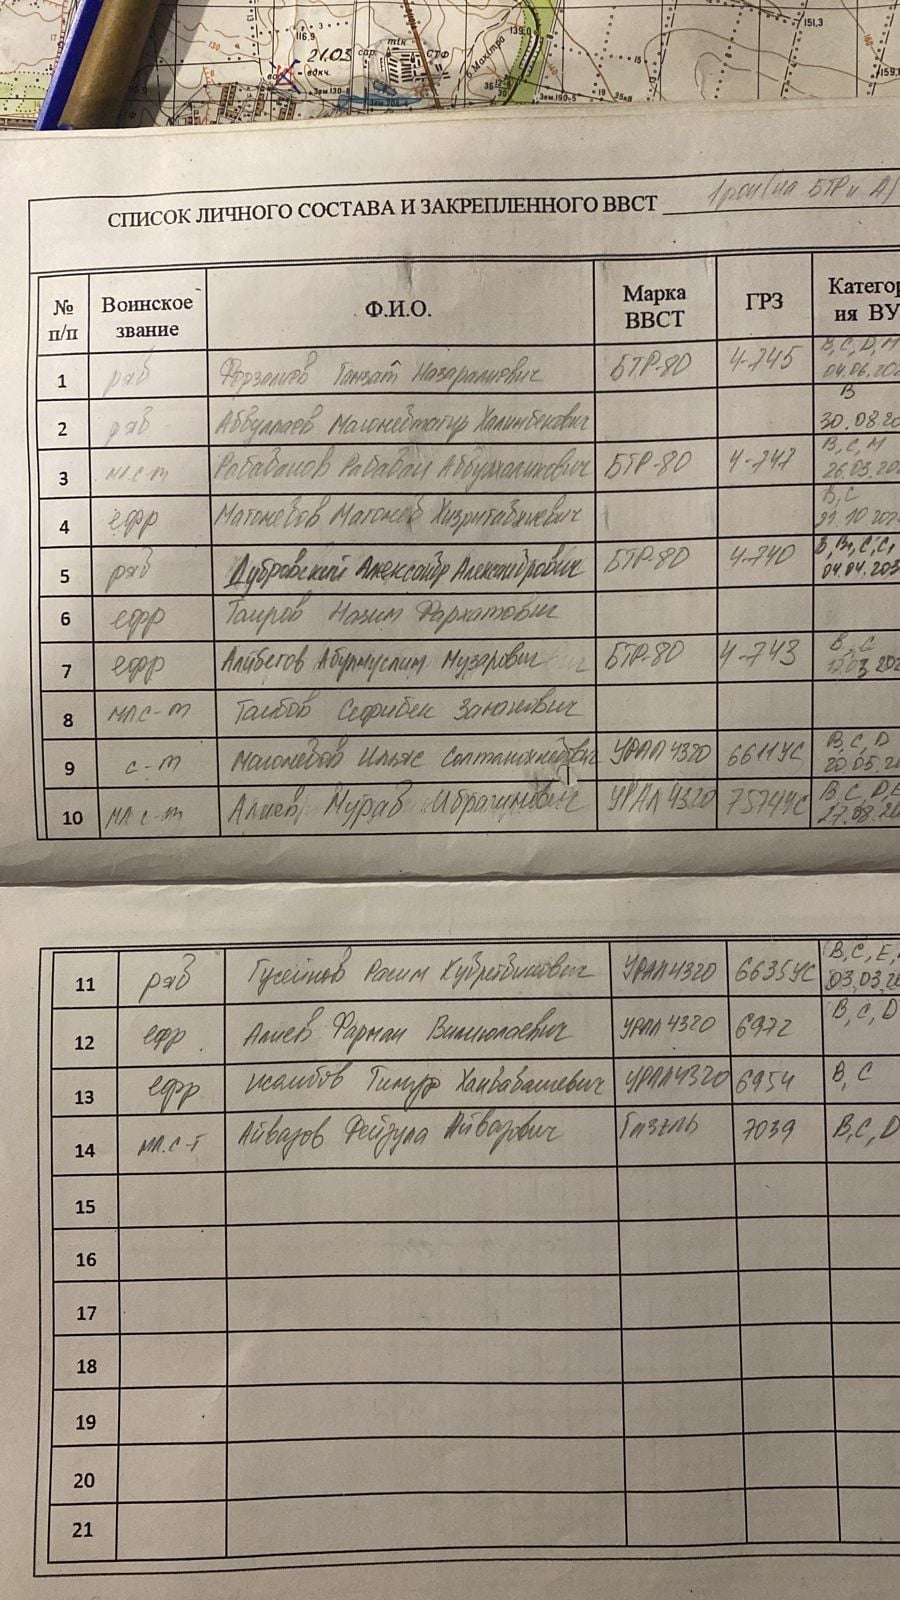 116,9
21.03
сар.
mtк
СТФ
вдкч.
б.Мокитра
139,0
151,3
159,
СПИСОК ЛИЧНОГО СОСТАВА И ЗАКРЕПЛЕННОГО ВВСТ 1 рон (на БТР и А)
№ п/п Воинское звание Ф.И.О. Марка ВВСТ ГРЗ Категор ия ВУ
1 ряд Танзат Назаралиевич БТР-80 4-745 В, С, D, М 04.06.20
2 ряд Абдуллаев Магомедтагир Халимбекович В 30.08.20
3 мл.с-т Рабаданов Рабадан Абдулхаликович БТР-80 4-747 В, С, М 26.03.20
4 ефр Магомедов Магомед В, С 21.10.20
5 ряд Дубровский Александр Александрович БТР-80 4-740 В, В1, С, С1 04.04.203
6 ефр Таиров Назим Фархатович
7 ефр Алибегов Абдулмуслим Музарович БТР-80 4-743 В, С 12.03.202
8 мл.с-т Талибов Сефибек
9 с-т Магомедов Ильяс УРАЛ 4320 6611УС В, С, D 20.05.2
10 мл с-т Алиев Мурад Ибрагимович УРАЛ 4320 7574УС В, С, D, Е 27.08.20
11 ряд Гусейнов Расим Худретдинович УРАЛ 4320 6635УС В, С, Е, 03.03.20
12 ефр Алиев Фарман УРАЛ 4320 6972 В, С, D
13 ефр Тимур Ханбабашевич УРАЛ 4320 6954 В, С
14 мл.с-т Айвазов Фейзула Айвазович Газель 7039 В, С, D
15
16
17
18
19
20
21